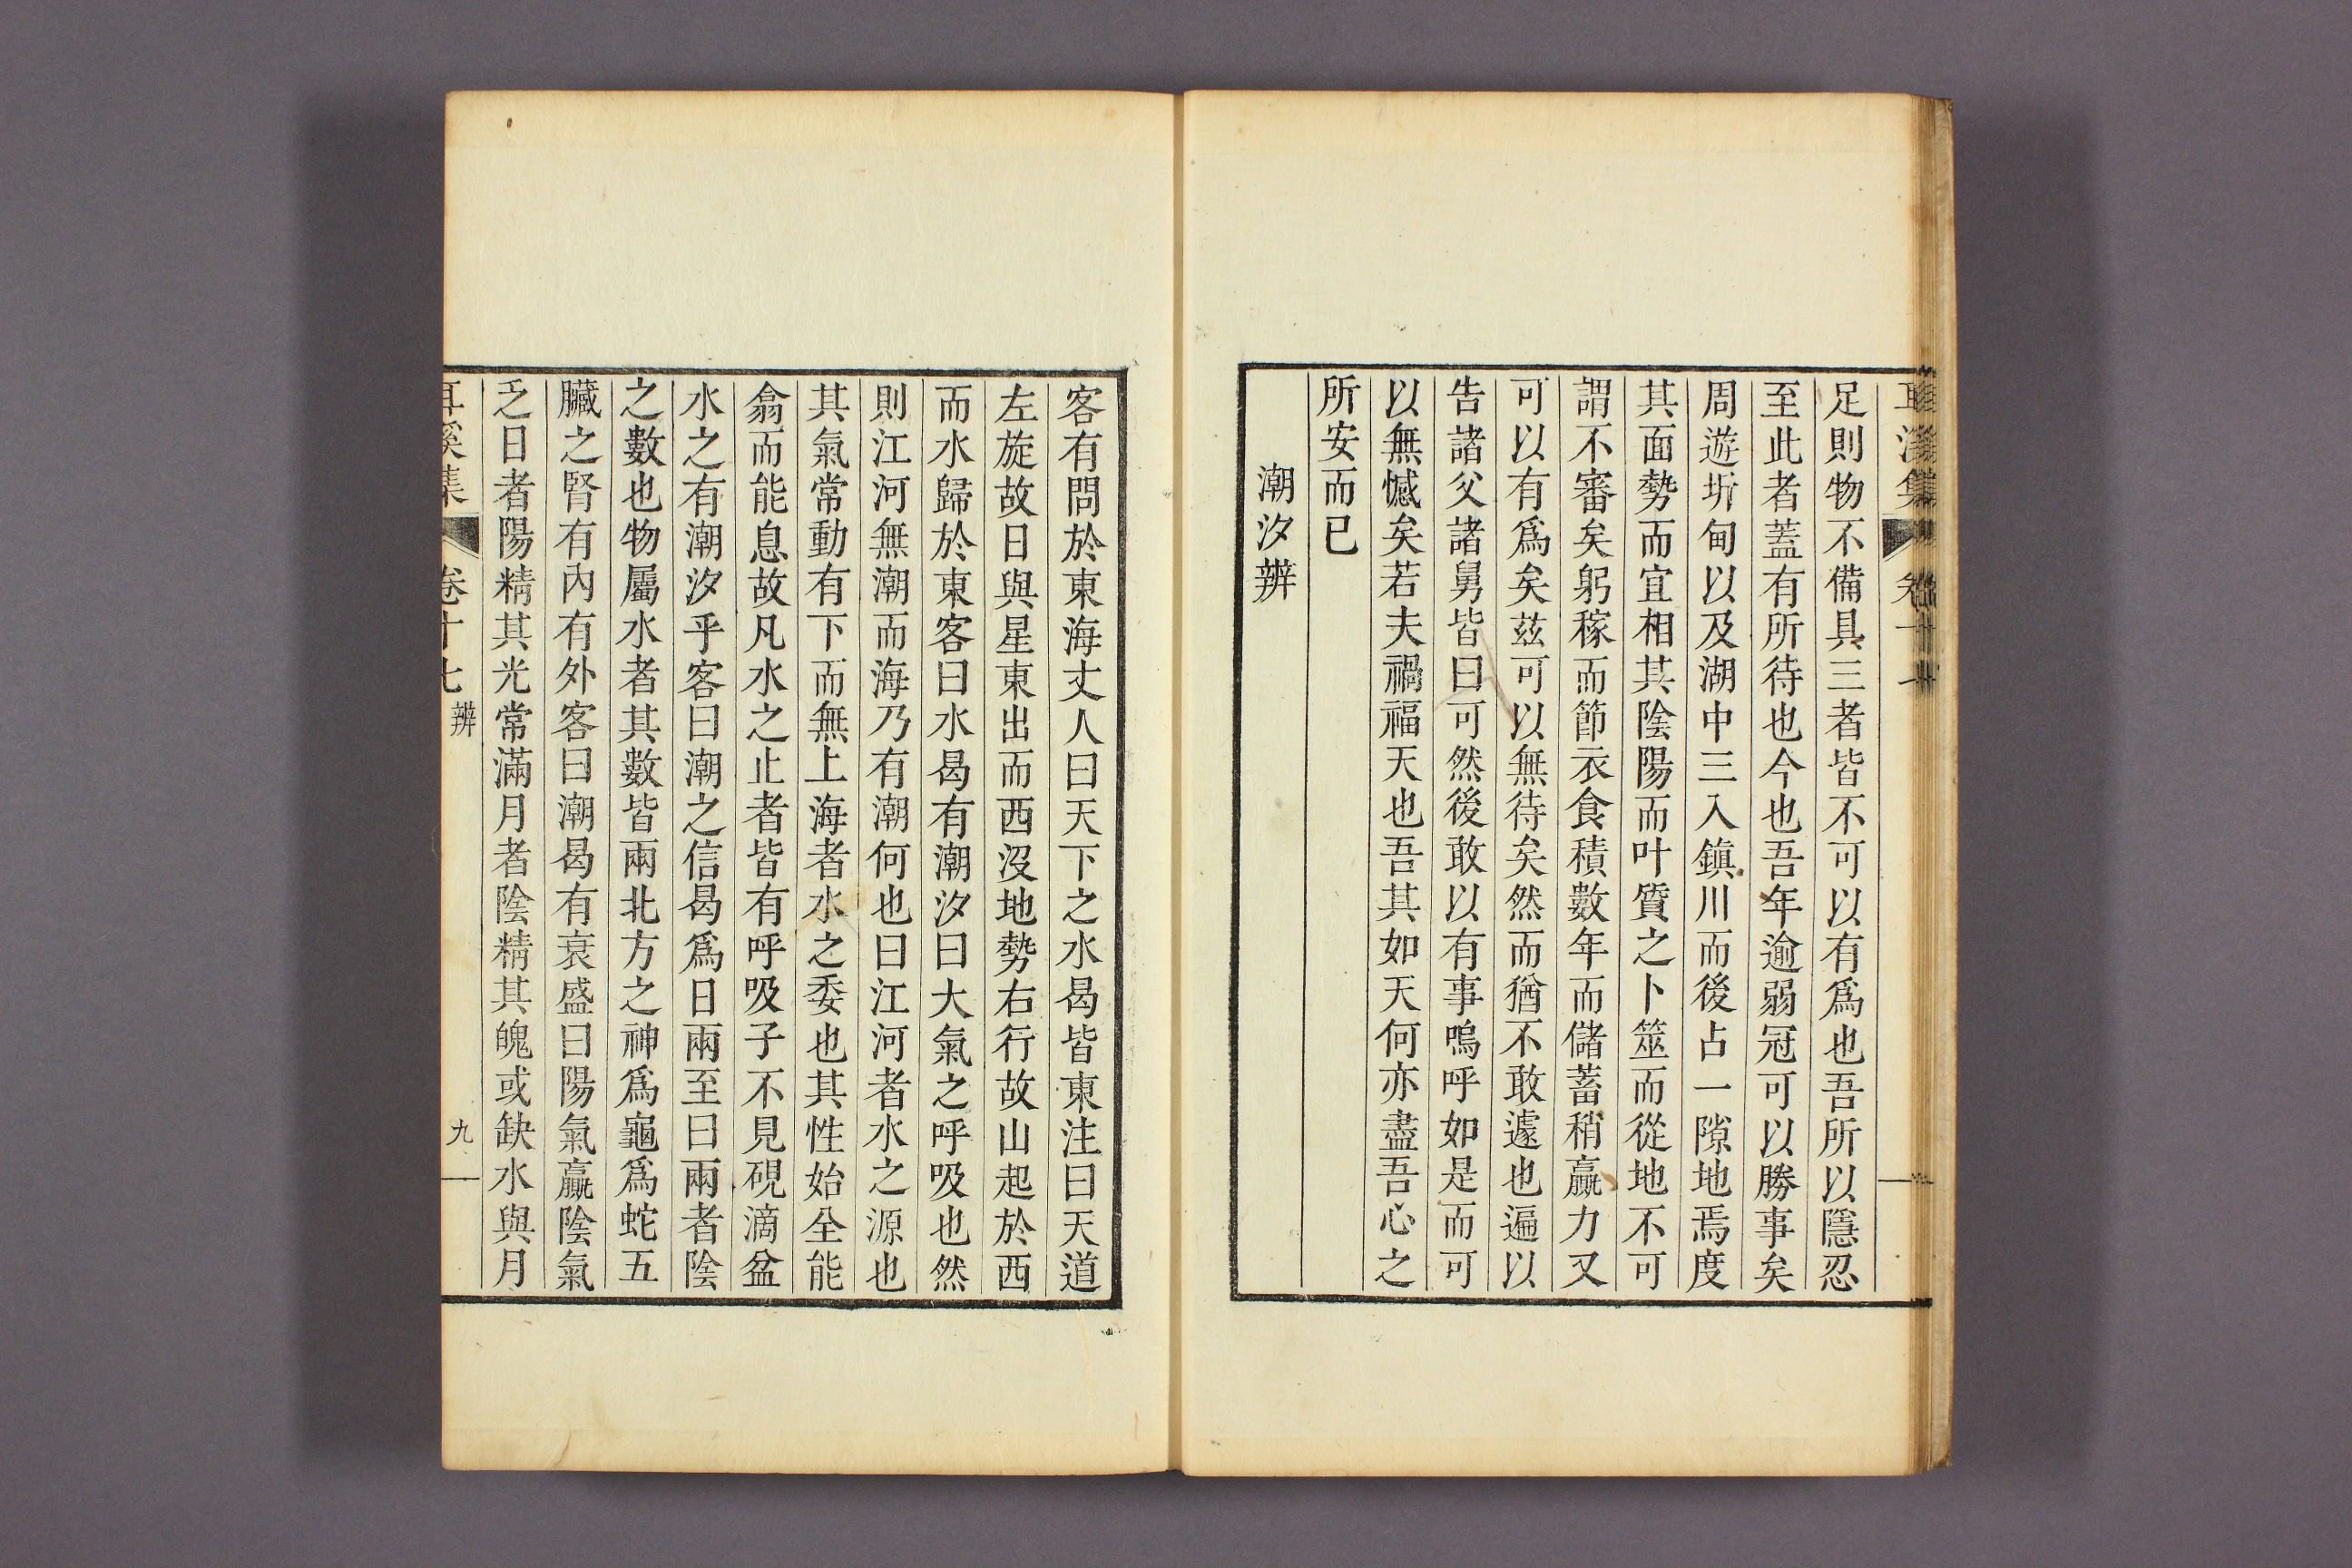 足則物不備具三者皆不可以有爲也吾所以隱忍
至此者蓋有所待也今也吾年逾弱冠可以勝事矣
周遊圻甸以及湖中三入鎭川而後占一隙地焉度
其面勢而宜相其陰陽而叶質之卜筮而從地不可
謂不審矣躬稼而節衣食積數年而儲蓄稍贏力又
可以有爲矣玆可以無待矣然而猶不敢遽也遍以
告諸父諸舅皆曰可然後敢以有事嗚呼如是而可
以無憾矣若夫禍福天也吾其如天何亦盡吾心之
所安而已
潮汐辨
客有問於東海丈人曰天下之水曷皆東注曰天道
左旋故日與星東出而西沒地勢右行故山起於西
而水歸於東客曰水曷有潮汐曰大氣之呼吸也然
則江河無潮而海乃有潮何也曰江河者水之源也
其氣常動有下而無上海者水之委也其性始全能
翕而能息故凡水之止者皆有呼吸子不見硯滴盆
水之有潮汐乎客曰潮之信曷爲日兩至曰兩者陰
之數也物屬水者其數皆兩北方之神爲龜爲蛇五
臟之腎有內有外客曰潮曷有衰盛曰陽氣贏陰氣
乏日者陽精其光常滿月者陰精其魄或缺水與月
耳溪集 卷十七 辨 九